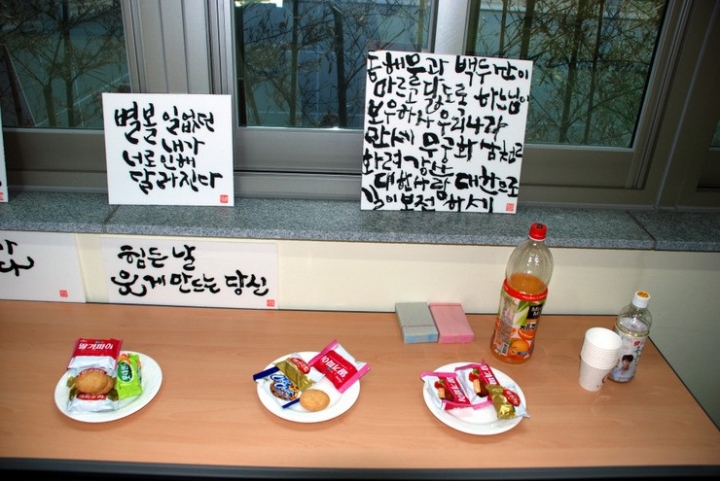 별볼 일 없던
내가
너로 인해
달라진다
동해물과 백두산이
마르고 닳도록 하느님이
보우하사 우리나라
만세 무궁화 삼천리
화려 강산
대한사람 대한으로
길이 보전 하세
힘든 날
웃게 만드는 당신